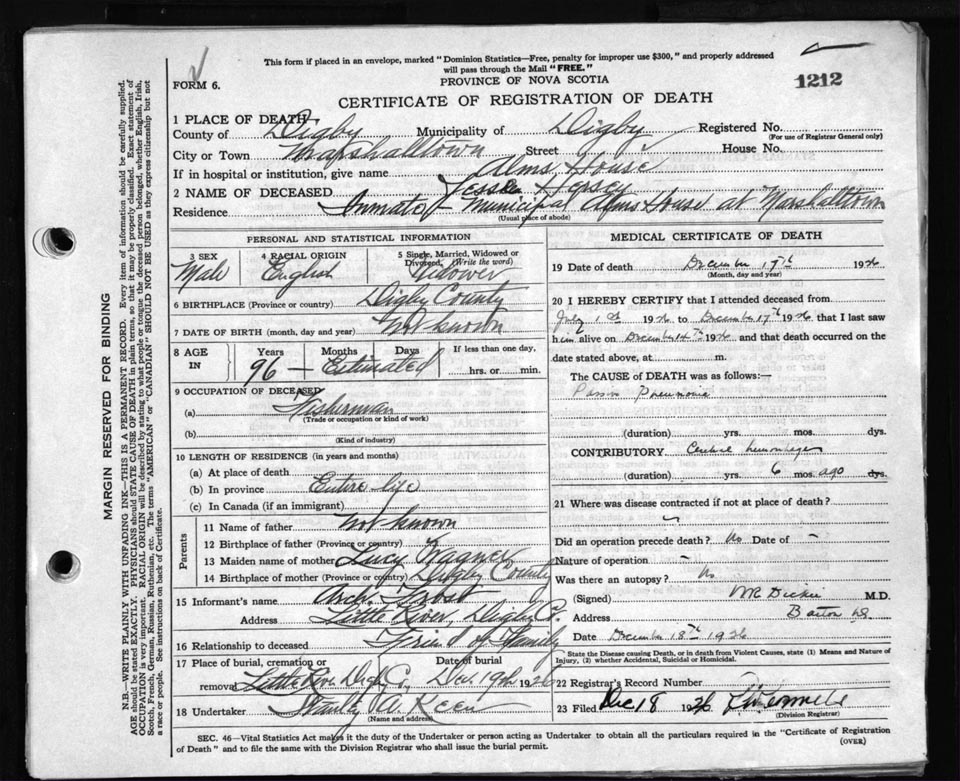 This form if placed in an envelope, marked "Dominion Statistics—Free, penalty for improper use $300," and properly addressed
will pass through the Mail "FREE."
FORM 6.
PROVINCE OF NOVA SCOTIA
1212
CERTIFICATE OF REGISTRATION OF DEATH
1 PLACE OF DEATH
County of Digby Municipality of Digby Registered No.
(For use of Registrar General only)
City or Town Marshalltown Street House No.
If in hospital or institution, give name Alms House
2 NAME OF DECEASED Hersey
Residence Inmate of Municipal Alms House at Marshalltown
(Usual place of abode)
PERSONAL AND STATISTICAL INFORMATION
3 SEX Male
4 RACIAL ORIGIN English
5 Single, Married, Widowed or Divorced (Write the word) Widower
6 BIRTHPLACE (Province or country) Digby County
7 DATE OF BIRTH (month, day and year) Not known
8 AGE IN Years Months Days If less than one day,
96 — Estimated hrs. or min.
9 OCCUPATION OF DECEASED
(a) Fisherman
(Trade or occupation or kind of work)
(b)
(Kind of industry)
10 LENGTH OF RESIDENCE (in years and months)
(a) At place of death
(b) In province Entire life
(c) In Canada (if an immigrant)
Parents
11 Name of father Not known
12 Birthplace of father (Province or country)
13 Maiden name of mother Lucy Wagner
14 Birthplace of mother (Province or country) Digby County
15 Informant's name Arch. Frost
Address Little River, Digby Co.
16 Relationship to deceased Friend of Family
17 Place of burial, cremation or Date of burial
removal Little River Digby Co. Dec. 19th 1926
18 Undertaker Stanley W. Keen
(Name and address)
MEDICAL CERTIFICATE OF DEATH
19 Date of death December 17th 1926
(Month, day and year)
20 I HEREBY CERTIFY that I attended deceased from
July 1st 1926 to December 17th 1926 that I last saw
him alive on December 14th 1926 and that death occurred on the
date stated above, at m.
The CAUSE of DEATH was as follows:—
Pneumonia
(duration) yrs. mos. dys.
CONTRIBUTORY hemorrhage
(duration) yrs. 6 mos. ago dys.
21 Where was disease contracted if not at place of death?
Did an operation precede death? No Date of –
Nature of operation –
Was there an autopsy? No
(Signed) M.D.
Address Barton NS.
Date December 18th 1926
State the Disease causing Death, or in death from Violent Causes, state (1) Means and Nature of
Injury, (2) whether Accidental, Suicidal or Homicidal.
22 Registrar's Record Number
23 Filed Dec 18 1926
(Division Registrar)
SEC. 46—Vital Statistics Act makes it the duty of the Undertaker or person acting as Undertaker to obtain all the particulars required in the "Certificate of Registration
of Death" and to file the same with the Division Registrar who shall issue the burial permit. (OVER)
MARGIN RESERVED FOR BINDING
N.B.—WRITE PLAINLY WITH UNFADING INK—THIS IS A PERMANENT RECORD. Every item of information should be carefully supplied.
AGE should be stated EXACTLY. PHYSICIANS should STATE CAUSE OF DEATH in plain terms, so that it may be properly classified. Exact statement of
OCCUPATION is very important. RACIAL ORIGIN will be described by stating to what people or tongue the deceased person belonged, whether English, Irish,
Scotch, French, German, Russian, Ruthenian, etc. The terms "AMERICAN" or "CANADIAN" SHOULD NOT BE USED as they express citizenship but not
a race or people. See instructions on back of Certificate.